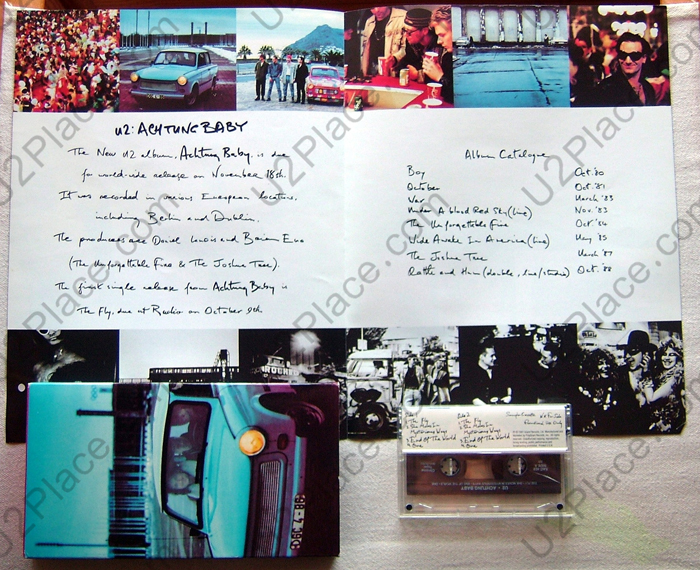 U2: ACHTUNG BABY
The New U2 album, Achtung Baby, is due
for world-wide release on November 18th.
It was recorded in various European locations,
including Berlin and Dublin.
The producers are Daniel Lanois and Brian Eno
(The Unforgettable Fire & The Joshua Tree).
The first single release from Achtung Baby is
The Fly, due at Radio on October 9th.
Album Catalogue
Boy Oct. '80
October Oct. '81
War March '83
Under A blood Red Sky (live) Nov '83
The Unforgettable Fire Oct. '84
Wide Awake In America (live) May '85
The Joshua Tree March '87
Rattle and Hum (double, live/studio) Oct. '88
Side 1
1. The Fly
Mysterious Ways
End Of The World
One
Side 2
1. The Fly
Mysterious Ways
End Of The World
One
U2 - ACHTUNG BABY
U2Place.com